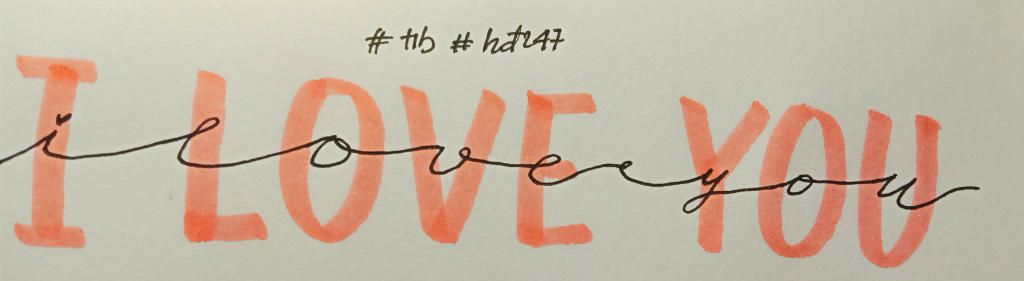 # tib # hdh247
I LOVE YOU
i love you